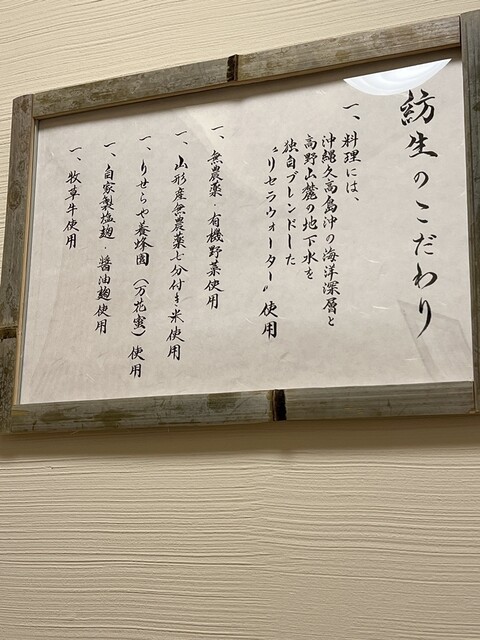 紡生のこだわり
一、料理には、
沖縄久高島沖の海洋深層と
高野山麓の地下水を
独自ブレンドした
〝リセラウォーター〟使用
一、無農薬・有機野菜使用
一、山形産無農薬七分付き米使用
一、りせらや養蜂園（万花蜜）使用
一、自家製塩麹・醤油麹使用
一、牧草牛使用